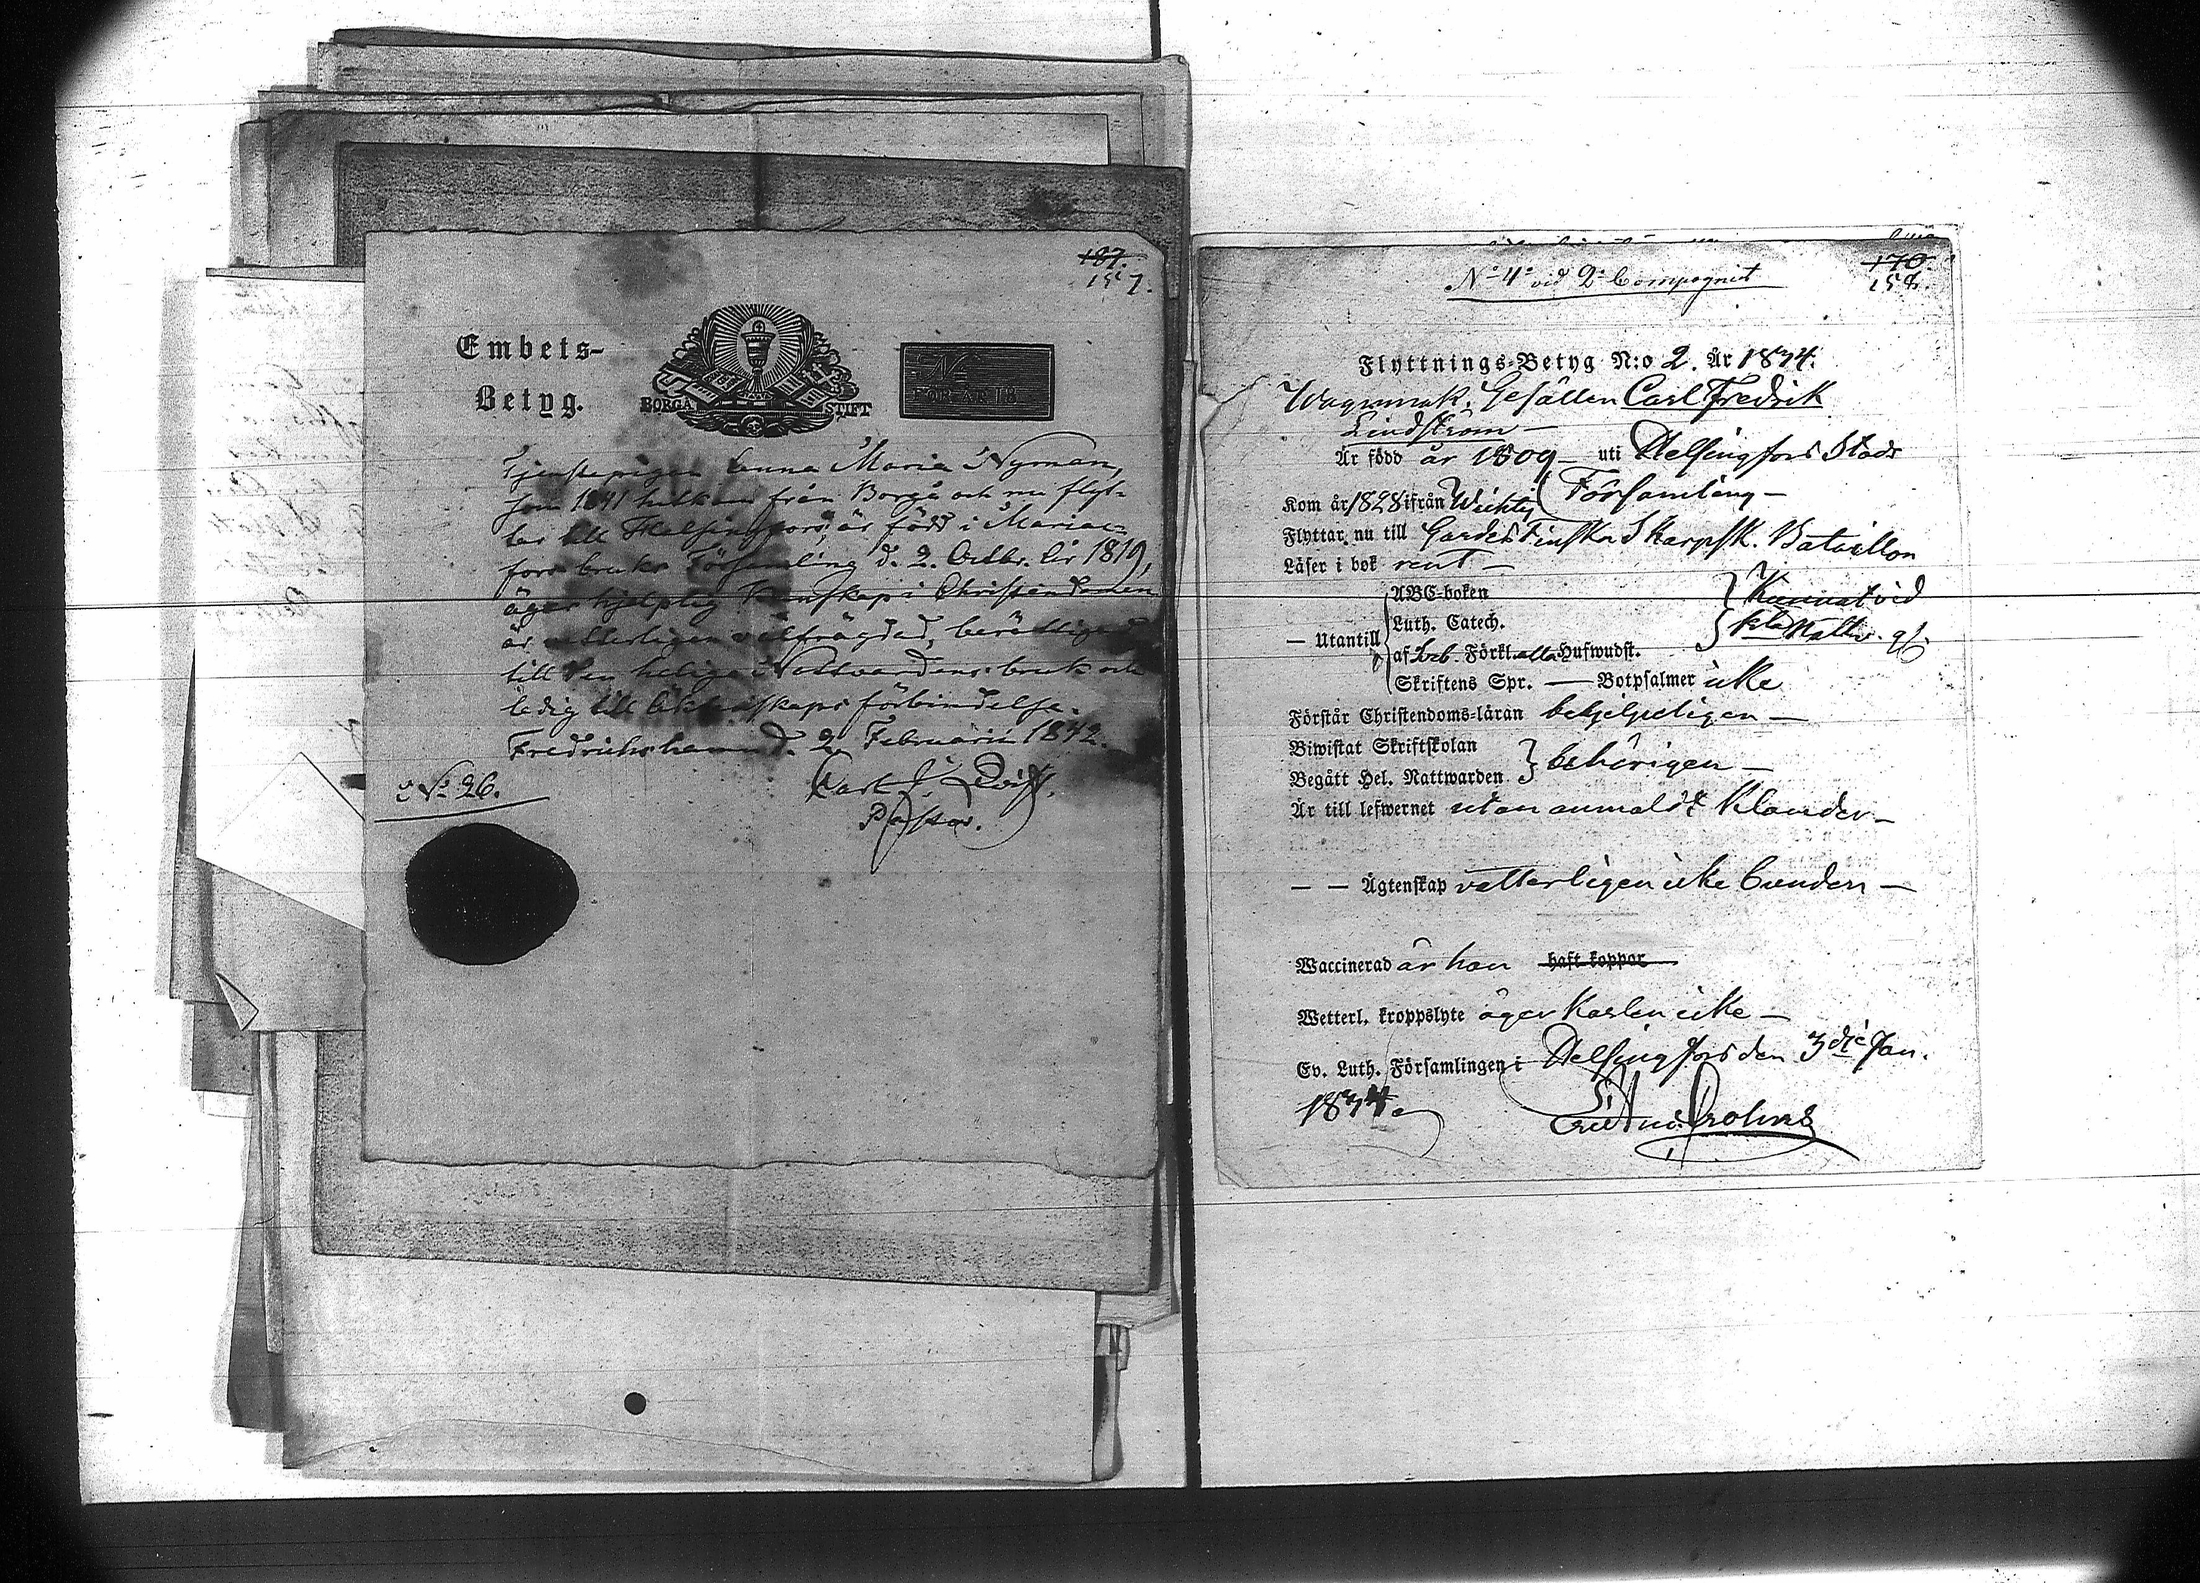 187.
157.
Embets-
Betyg.
BORGÅ STIFT
No
FÖR ÅR 18
Tjenstepigan Anna Maria Nyman,
som 1841 hitkom från Borgå och nu flyt-
tar till Helsingfors, är född i Marise-
fors bruks Församling d. 2. Octbr. år 1819,
äger hjelplig Kunskap i Christendomen
är otterligen välfrägdad, berättigad
till den heliga Nattvardens bruk och
ledig till äktenskaps förbindelse.
Fredrichshamn d. 2 Februarii 1842.
Carl
Pastor.
No 26.
170.
158.
No 4 vid 2 Compagniet
Flyttnings-Betyg N:o 2. År 1834.
Wagnmak. Gesällen Carl Fredrik
Lindström
Är född år 1809 uti Helsingfors Stads
Församling
Kom år 1828 ifrån Wichtis
Flyttar nu till Gardes Finska Skarpsk. Bataillon
Läser i bok rent
ABC-boken
Luth. Catech.
Utantill
af Sveb. Förkl. alla Hufwudst.
Kunnat vid
Nattv. g.
Skriftens Spr. — Botpsalmer icke
Förstår Christendoms-läran behjelpeligen
Biwistat Skriftskolan
Begått Hel. Nattwarden behörigen
Är till lefwernet utan anmäldt klander
— — Ägtenskap vetterligen icke bunden
Waccinerad är han haft koppor
Wetterl. kroppslyte äger Karlen icke
Ev. Luth. Församlingen i Helsingfors den 3die Jan.
1834.
Crohns